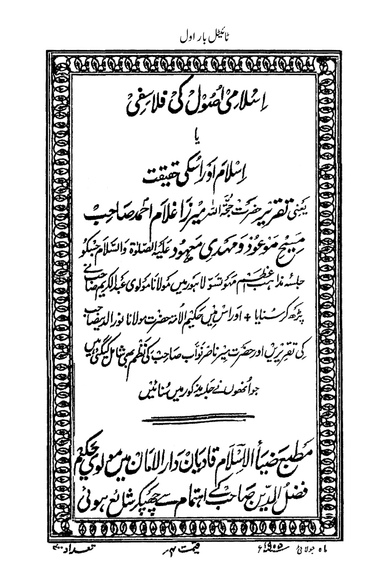 ٹائیٹل بار اول
اسلامی اصول کی فلاسفی
یا
اسلام اور اسکی حقیقت
یعنی تقریر حضرت حجۃ اللہ میرزا غلام احمد صاحب
مسیح موعود و مہدی معہود علیہ الصلوٰۃ والسلام جسکو
جلسہ مذاہب عظیم مہوتسو لاہور میں مولانا مولوی عبدالکریم صاحب نے
پڑھ کر سنایا + اور اس میں حکیم الامۃ حضرت مولانا نورالدین صاحب
کی تقریریں اور حضرت میر ناصر نواب صاحب کی نظم بھی شامل کی گئی ہیں
جو انھوں نے جلسہ مذکور میں سنائیں
مطبع ضیاء الاسلام قادیان دار الامان میں مولوی حکیم
فضل الدین صاحب کے اہتمام سے چھپکر شائع ہوئی
ماہ جولائی ۱۹۰۵ء قیمت تعداد